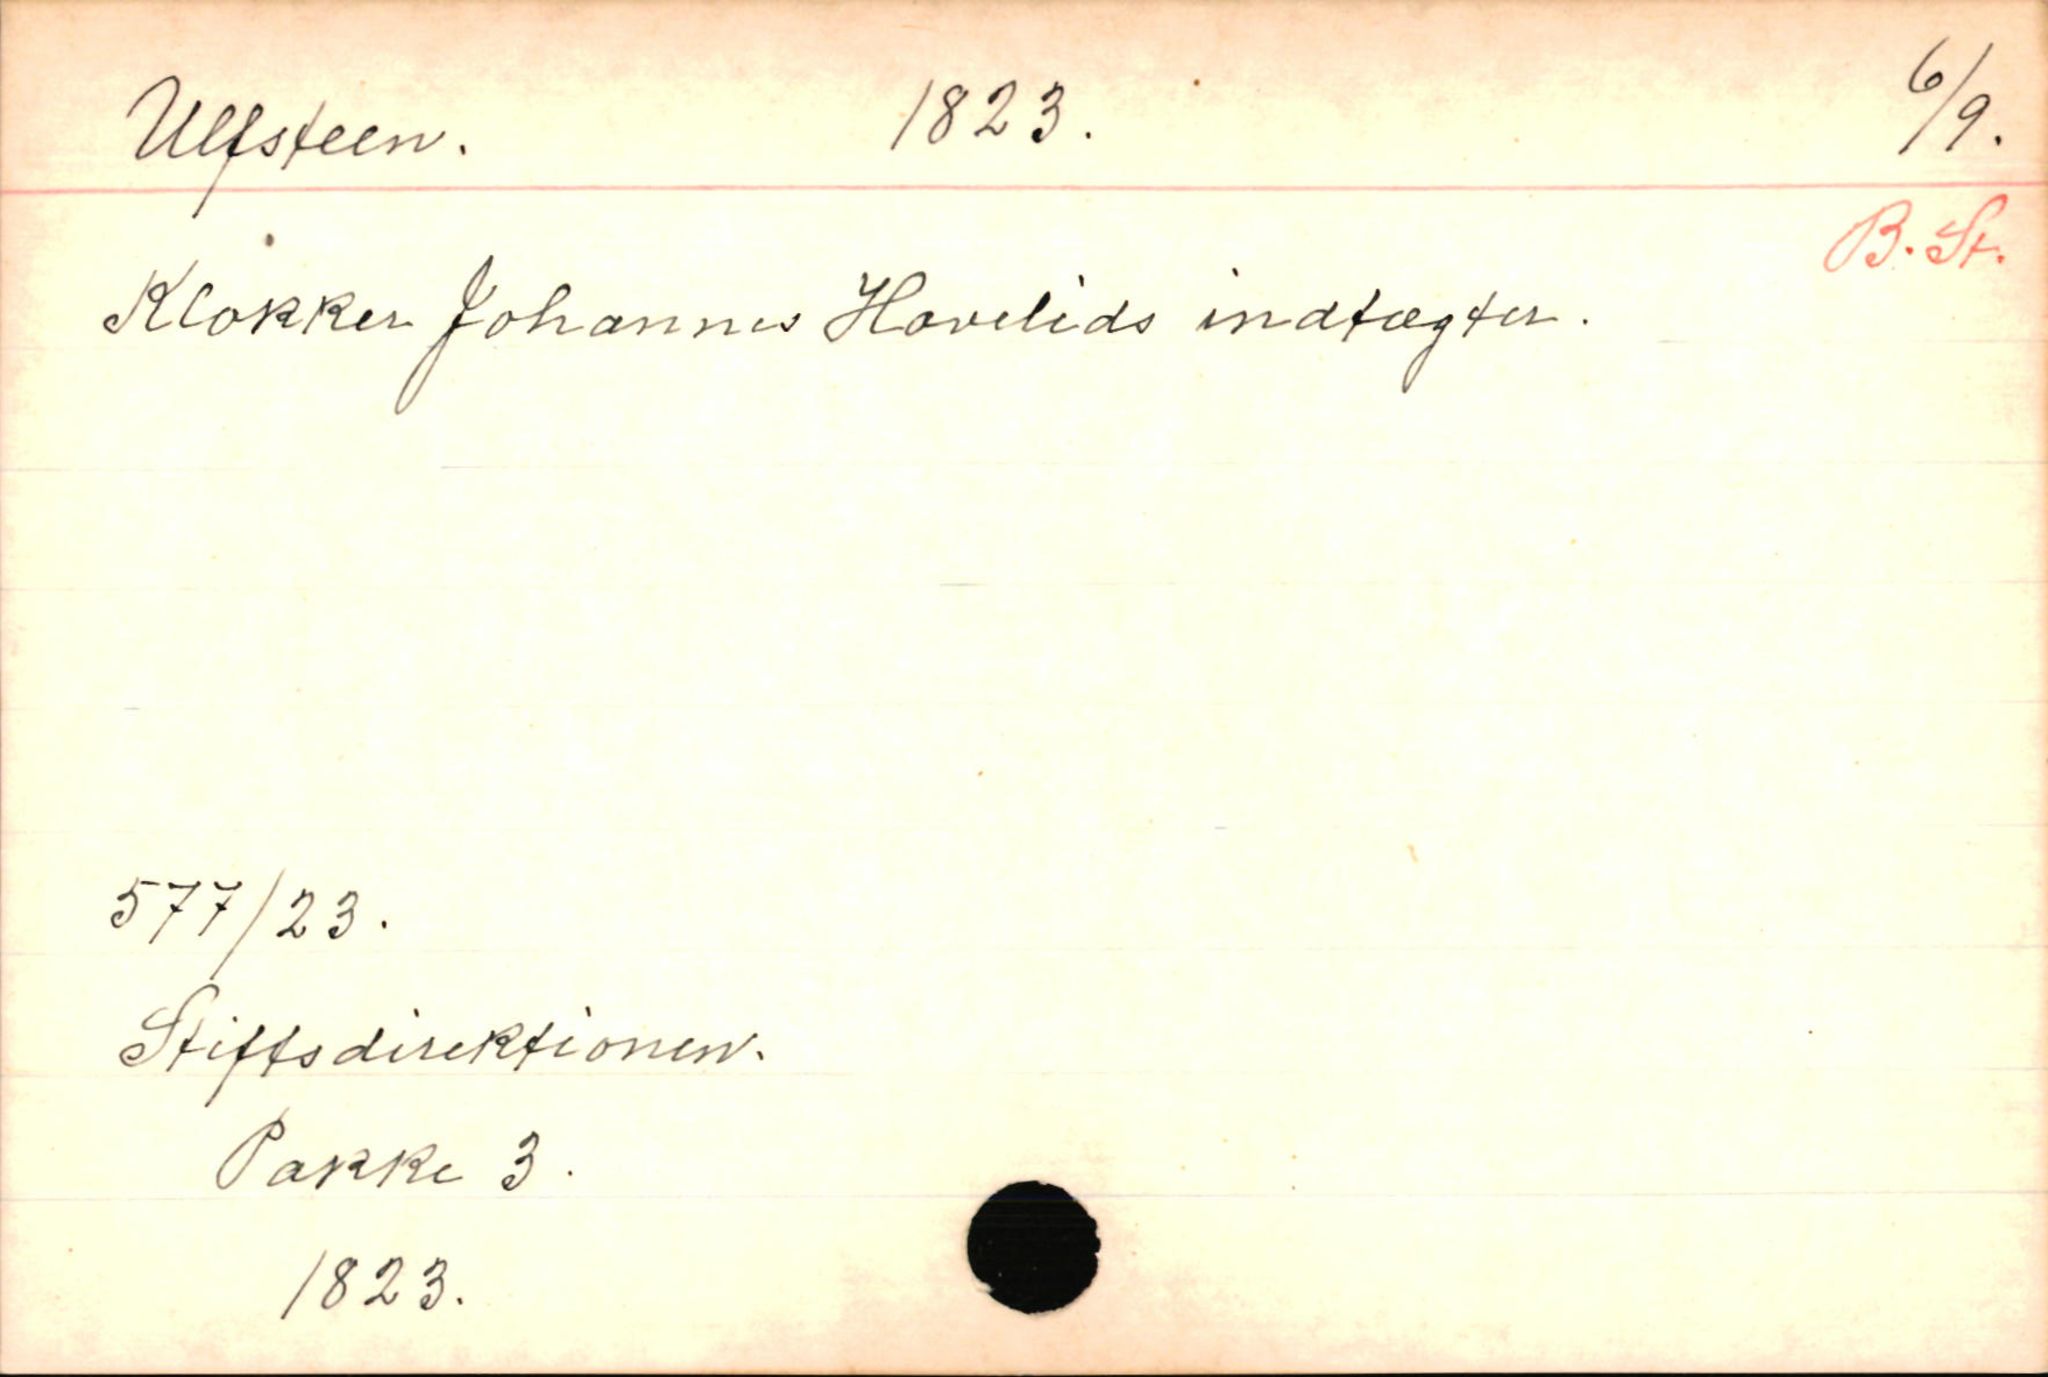 Ulfsteen. 1823. 6/9.
B. St.
Klokker Johannes Havelids indtægter.
577/23.
Stiftsdirektionen.
Pakke 3.
1823.